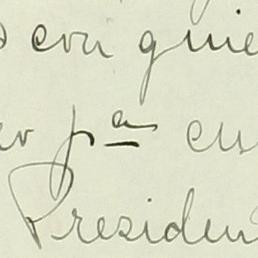 con quie
pª en
Presiden